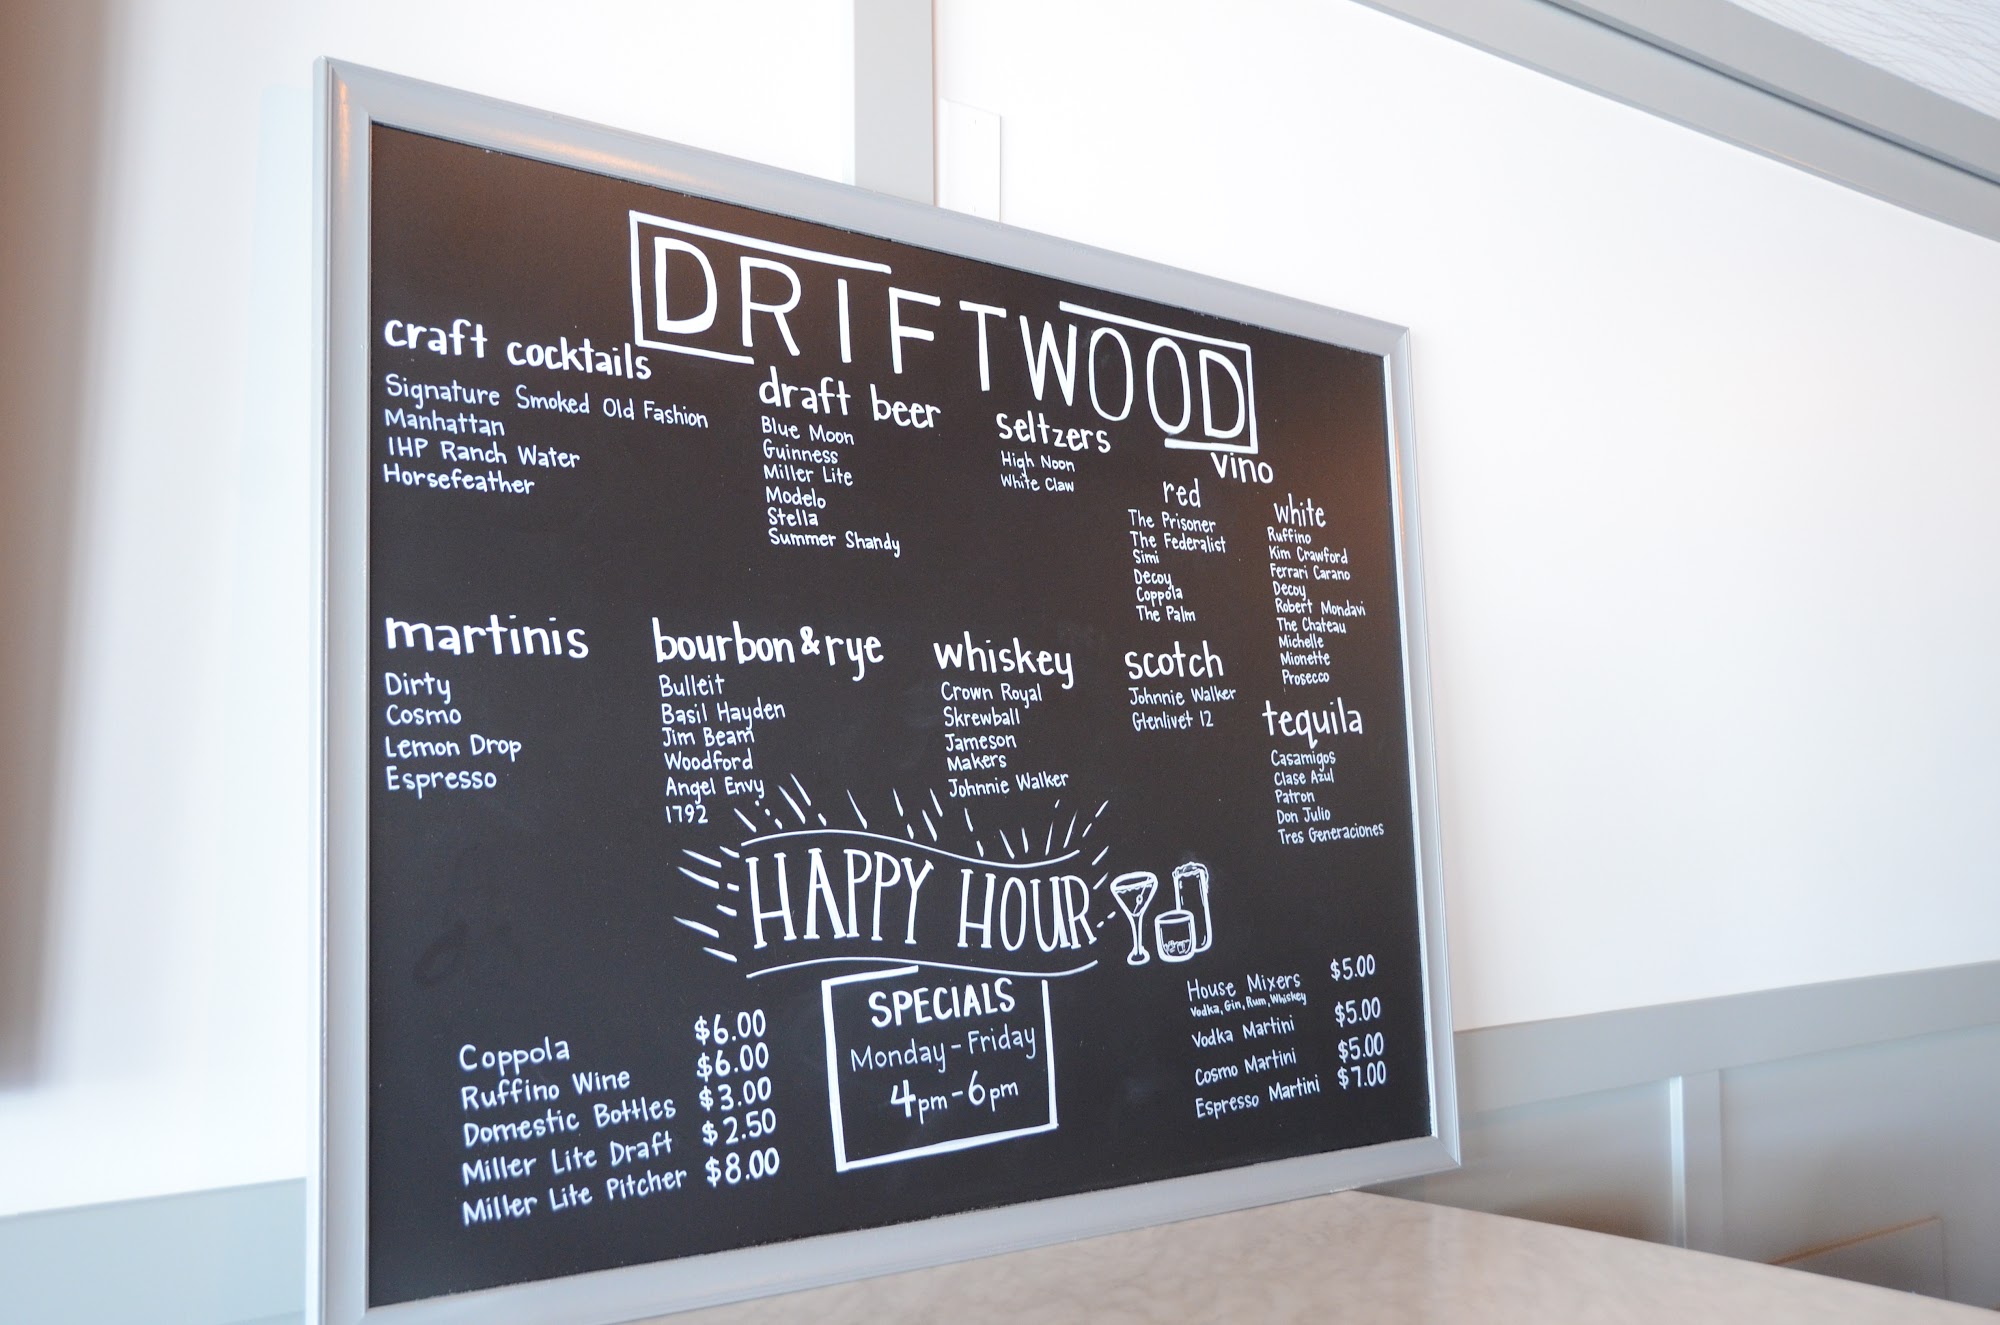 DRIFTWOOD
craft cocktails
Signature Smoked Old Fashion
Manhattan
1HP Ranch Water
Horsefeather
draft beer
Blue Moon
Guinness
Miller Lite
Modelo
Stella
Summer Shandy
seltzers
High Noon
White Claw
vino
red
The Prisoner
The Federalist
Simi
Decoy
Coppola
The Palm
white
Ruffino
Kim Crawford
Ferrari Carano
Decoy
Robert Mondavi
The Chateau
Michelle
Mionette
Prosecco
martinis
Dirty
Cosmo
Lemon Drop
Espresso
bourbon & rye
Bulleit
Basil Hayden
Jim Beam
Woodford
Angel Envy
1792
whiskey
Crown Royal
Skrewball
Jameson
Makers
Johnnie Walker
scotch
Johnnie Walker
Glenlivet 12
tequila
Casamigos
Clase Azul
Patron
Don Julio
Tres Generaciones
HAPPY HOUR
Coppola $6.00
Ruffino Wine $6.00
Domestic Bottles $3.00
Miller Lite Draft $2.50
Miller Lite Pitcher $8.00
SPECIALS
Monday - Friday
4pm - 6pm
House Mixers $5.00
Vodka, Gin, Rum, Whiskey
Vodka Martini $5.00
Cosmo Martini $5.00
Espresso Martini $7.00